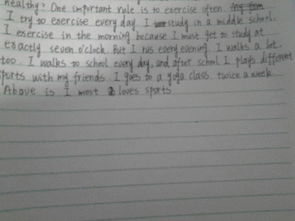 healthy? One important rule is to exercise often.
I try to exercise every day. I study in a middle school.
I exercise in the morning because I must get to study at
exactly seven o'clock. But I runs every evening. I walks a lot
too. I walks to school every day, and after school I plays different
sports with my friends. I goes to a yoga class twice a week.
Above is I most loves sports